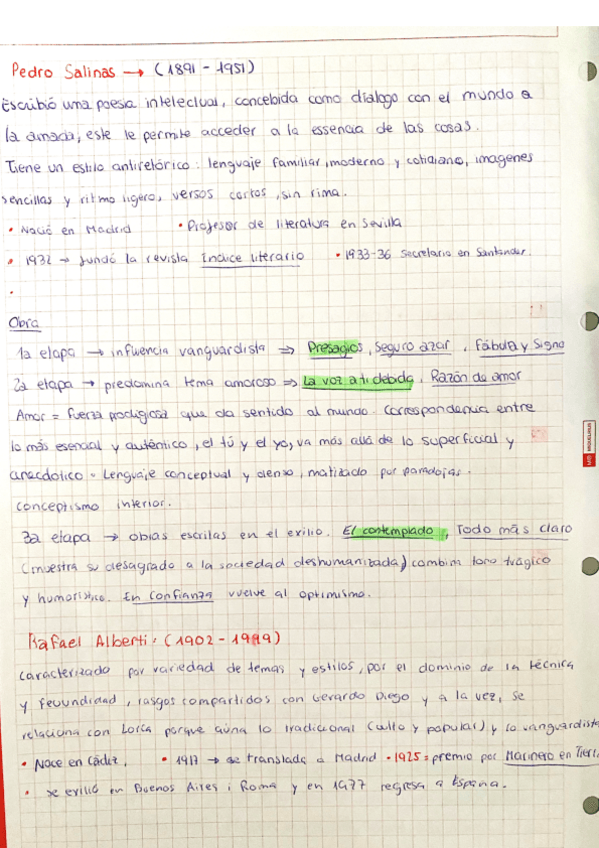 Pedro Salinas → (1891 - 1951)
Escribió una poesia intelectual, concebida como dialogo con el mundo o
la amada, este le permite acceder a la essencia de las cosas.
Tiene un estilo antiretórico: lenguaje familiar, moderno y cotidiano, imagenes
sencillas y ritmo ligero, versos cortos, sin rima.
• Nació en Madrid • Profesor de literatura en Sevilla
• 1932 → fundó la revista Indice literario • 1933-36 Secretario en Santander.
•
Obra
1a etapa → influencia vanguardista ⇒ Presagios, Seguro azar, Fábula y Signo
2a etapa → predomina tema amoroso ⇒ La voz a ti debida, Razón de amor
Amor = fuerza prodigiosa que da sentido al mundo. Correspondencia entre
lo más esencial y auténtico, el tú y el yo, va más allá de lo superficial y
anecdótico. Lenguaje conceptual y denso, matizado por paradojas.
conceptismo interior.
3a etapa → obras escritas en el exilio. El contemplado, Todo más claro
(muestra su desagrado a la sociedad deshumanizada) combina tono trágico
y humorístico. En Confianza vuelve al optimismo.
Rafael Alberti: (1902 - 1999)
Caracterizado por variedad de temas y estilos, por el dominio de la técnica
y fecundidad, rasgos compartidos con Gerardo Diego y a la vez, se
relaciona con Lorca porque aúna lo tradicional (culto y popular) y lo vanguardista
• Nace en Cádiz. • 1917 → se translada a Madrid • 1925 = premio por Marinero en Tierra
• se exilió en Buenos Aires i Roma y en 1977 regresa a España.
MIQUELRIUS